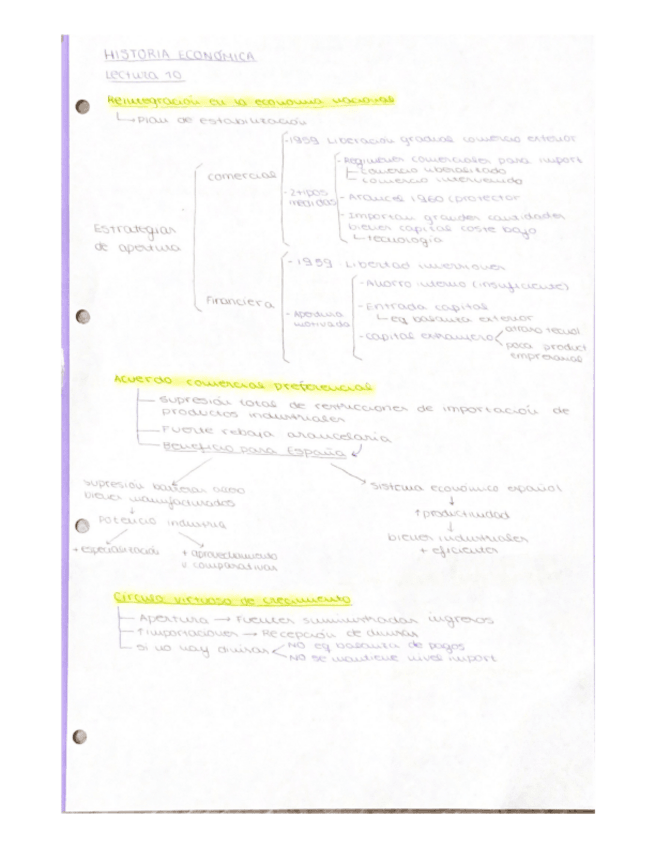 HISTORIA ECONÓMICA
Lectura 10
Reintegración en la economía nacional
Plan de estabilización
Estrategias de apertura
comercial
- 1959 Liberación gradual comercio exterior
- 2 tipos medidas
- Regímenes comerciales para import
comercio liberalizado
comercio intervenido
- Arancel 1960 (protector
- Importan grandes cantidades
bienes capital coste bajo
tecnología
Financiera
- 1959 Libertad inversiones
- Apertura motivada
- Ahorro interno (insuficiente)
- Entrada capital
eq balanza exterior
- capital extranjero
atraso tecnol
poca product
empresarial
Acuerdo comercial preferencial
supresión total de restricciones de importación de
productos industriales
Fuerte rebaja arancelaria
Beneficio para España
supresión barreras
bienes manufacturados
Potenció industria
+ especializació
+ aprovechamiento
v comparativas
sistema económico español
↑ productividad
bienes industriales
+ eficientes
Círculo virtuoso de crecimiento
Apertura → Fuentes suministradas ingresos
↑ importaciones → Recepción de divisas
si no hay divisas
NO eq balanza de pagos
NO se mantiene nivel import